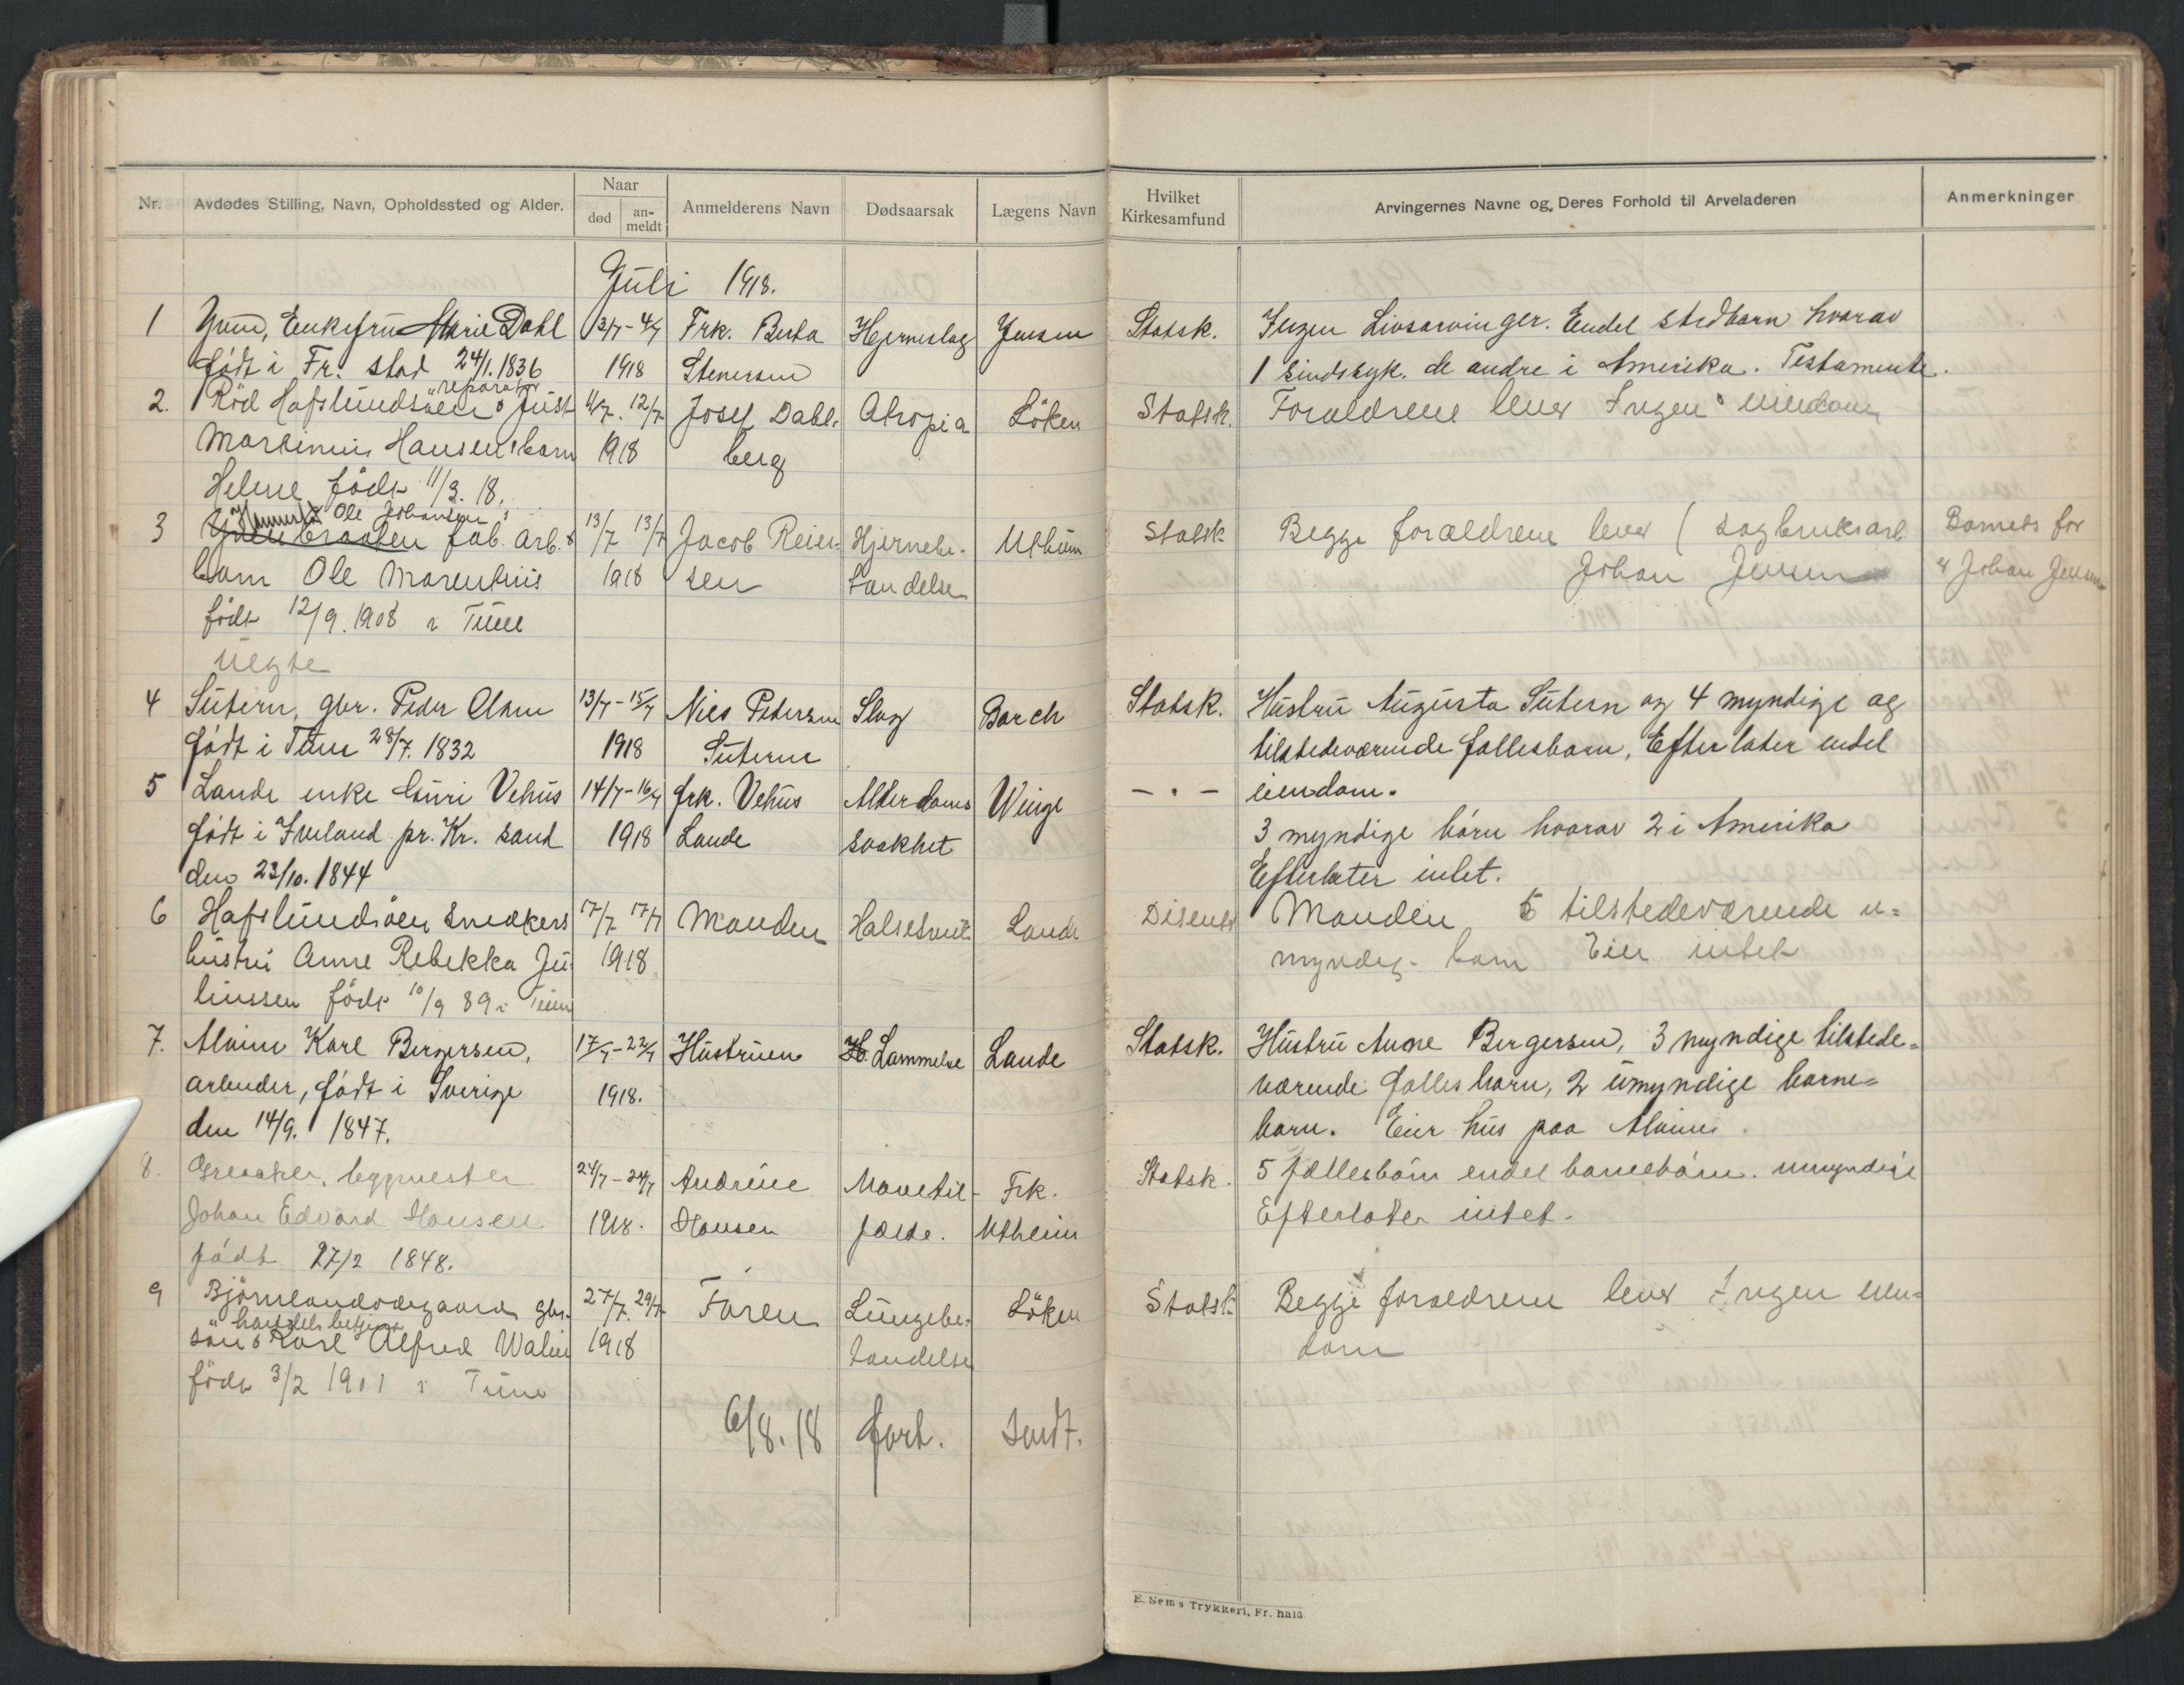 Nr. Avdødes Stilling, Navn, Opholdssted og Alder. Naar død an-meldt Anmelderens Navn Dødsaarsak Lægens Navn Hvilket Kirkesamfund Arvingernes Navne og Deres Forhold til Arveladeren Anmerkninger
Juli 1918.
1 Enkefru Marie Dahl 3/7-4/7 Frk. Berta Hjerneslag Jensen Statsk. Ingen Livsarvinger. Endel stedbarn hvorav
født i Fr. stad 24/1. 1836 1918 Stenersen 1 sindssyk. de andre i Amerika. Testamente.
reparatør
2. Röd Hafslundsöen Just 11/7. 12/7 Josef Dahl- Atropia Löken Statsk. Foraldrene lever Ingen eiendom
Martinius Hansens barn 1918 berg
Helene födt 11/3. 18.
Ole Johansen
3 fab. arb. s 13/7 13/7 Jacob Reier- Hjernebe- Utheim Statsk Begge forældrene lever ( sagbruksarb. Barnets far
barn Ole Marentius 1918 sen tændelse Johan Jensen er Johan Jensen
födt 12/9. 1908 i Tune
uegte
4 Sutern, gbr. Peder Olsen 13/7-15/7 Niels Pedersen Slag Barch Statsk. Hustru Augusta Sutern og 4 myndige og
født i Tune 28/7. 1832 1918 Suterne tilstedeværende fallesbarn, Efterlater endel
5 Lande enke Guri Vehus 14/7-16/7 frk. Vehus Alderdoms Winge - " - eiendom.
født i Iveland pr. Kr. sand 1918 Lande svakhet 3 myndige börn hvorav 2 i Amerika
den 23/10. 1844 Efterlater intet.
6 Hafslundsöen Snedkers 17/7 17/7 Manden Halsetuns Lande Disenter Manden 5 tilstedeværende u-
hustru Anne Rebekka Ju- 1918 myndig- barn Eier intet
liussen födt 10/9 89 i Tune
7. Alvim Karl Bergersen, 17/7-22/7 Hustruen Lammelse Lande Statsk. Hustru Anne Bergersen, 3 myndige tilstede-
arbeider, født i Sverige 1918. værende falles barn, 2 umyndige barne-
den 14/9. 1847. barn. Eier hus paa Alvim.
8. Greaaker, byggmester 24/7-24/7 Andrine Mavetil- Frk. Statsk. 5 fællesbörn endel barnebörn. umyndige
Johan Edvard Hansen 1918. Hansen fælde. Utheim Efterlater intet.
födt 27/2 1848.
9 Björnelandödegaard gbr. 27/7. 29/7 Faren Lungebe- Löken Statsk. Begge foraldrene lever Ingen eien-
handels betjent
sön Karl Alfred Walin 1918 tændelse dom
födt 3/2 1901 i Tune
6/8. 18 fort. sendt.
E. Sem's Trykkeri, Fr. hald